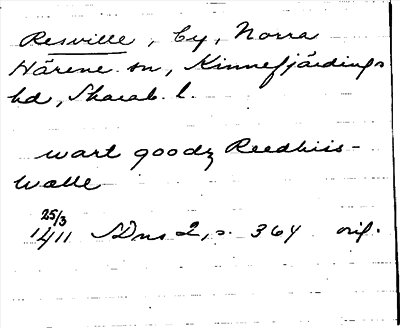 Resville, by, Norra
Härene sn, Kinnefjärdings
hd, Skarab. l.
wart goodz Reedhiis-
walle
25/3
1411 SDns 2, s. 364 orig.